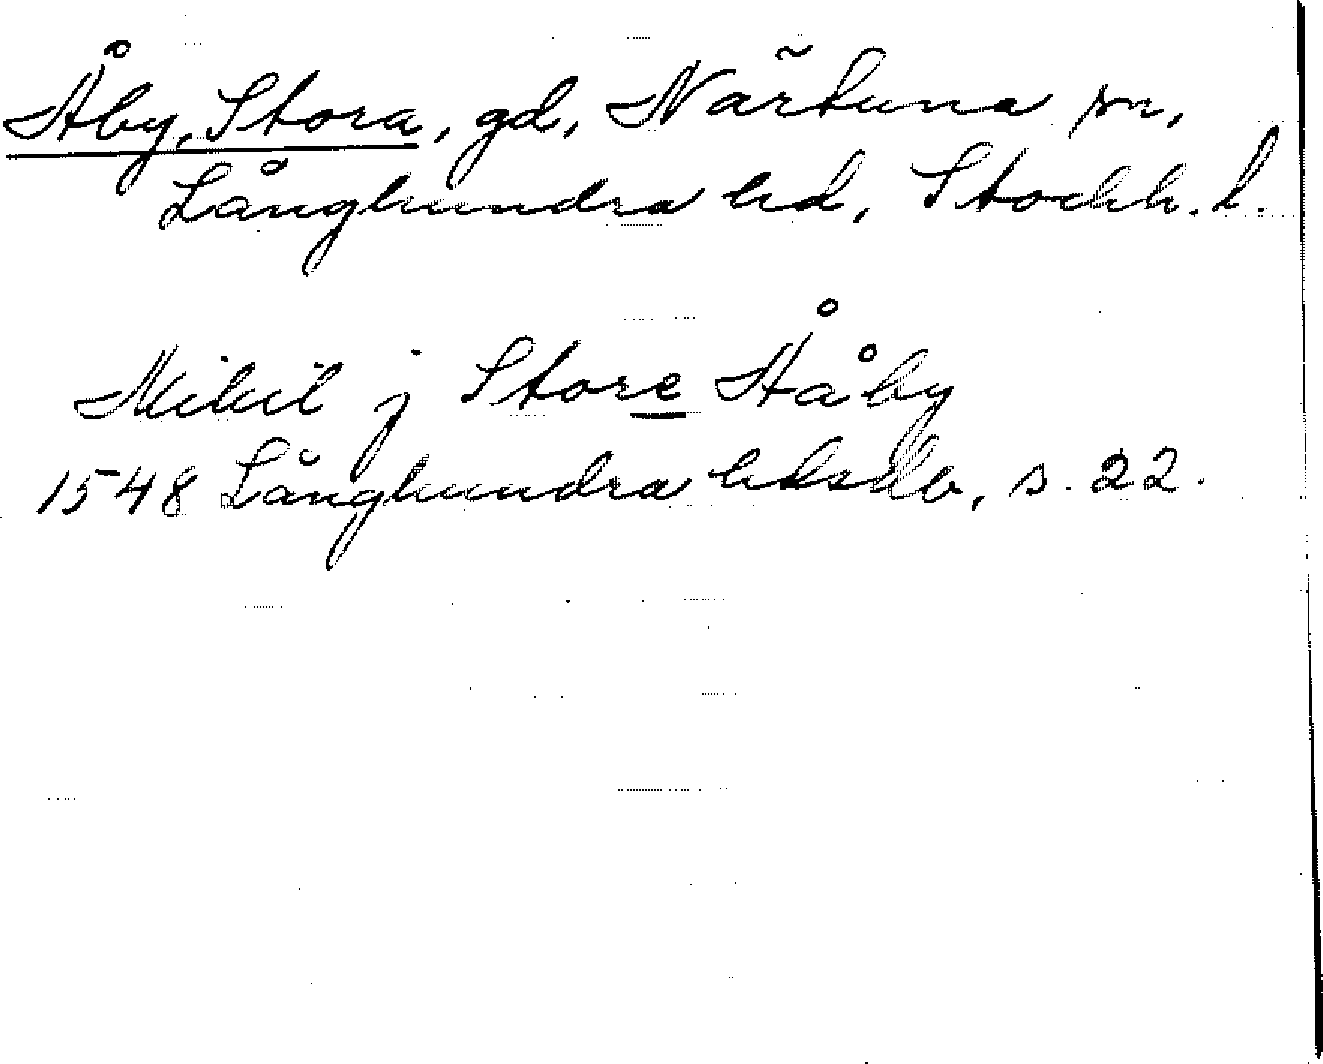 Åby, Stora, gd, Närtuna sn,
Långhundra hd, Stockh. l.
Mikil j Store Ååby
1548 Långhundra hdsdb, s. 22.